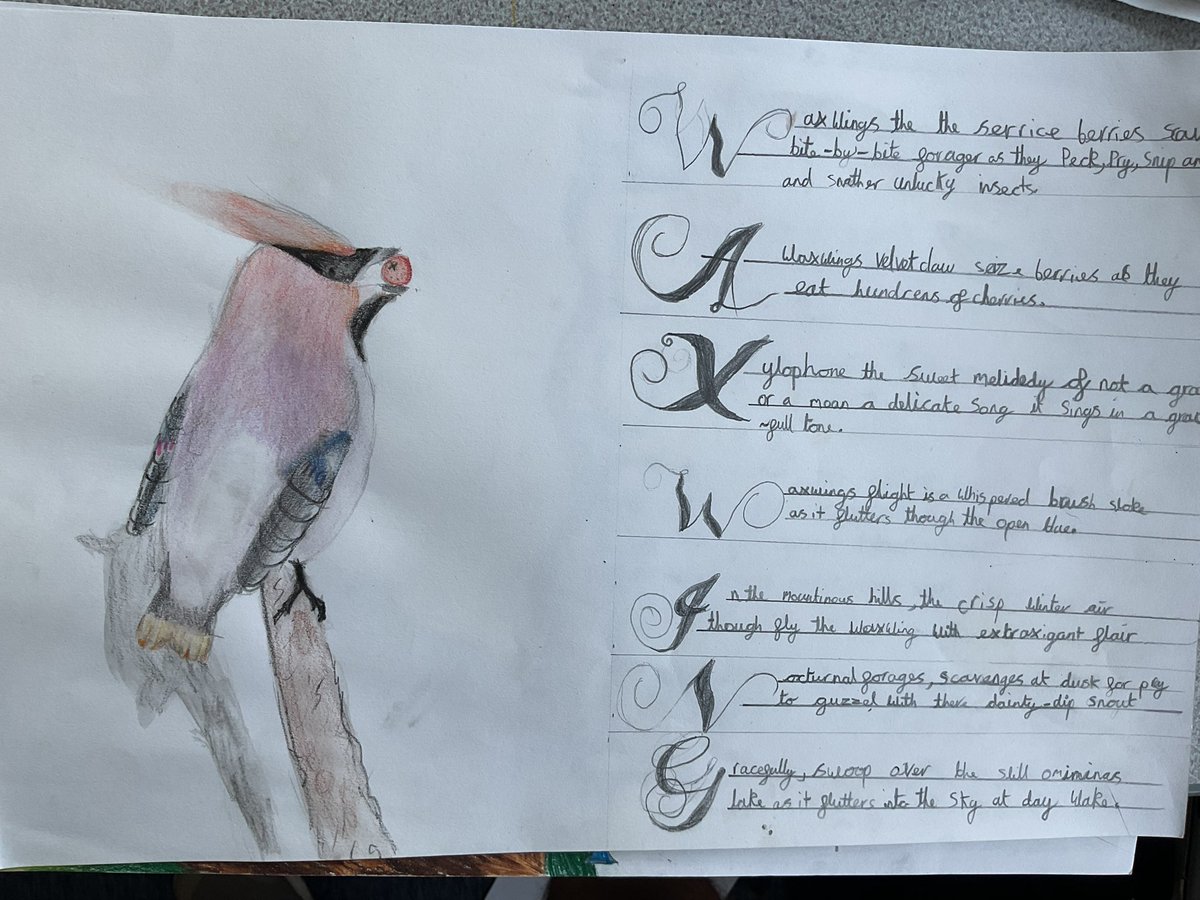 Waxwings the the serrice berries
bite-by-bite forager as they Peck, Pry, Snip
and snather unlucky insects.
A Waxwings velvet claw seize berries as they
eat hundrens of cherries.
Xylophone the sweet melidedy of not a
or a moan a delicate song it sings in a
~full tone.
Waxwings flight is a whispered brush stoke
as it flutters though the open blue.
In the mountinous hills, the crisp winter air
though fly the waxwing with extraxigant flair
Nocturnal forages, scavenges at dusk for pey
to guzzel with there dainty-dip snout
Gracefully, swoop over the still omiminas
lake as it flutters into the sky at day wake.